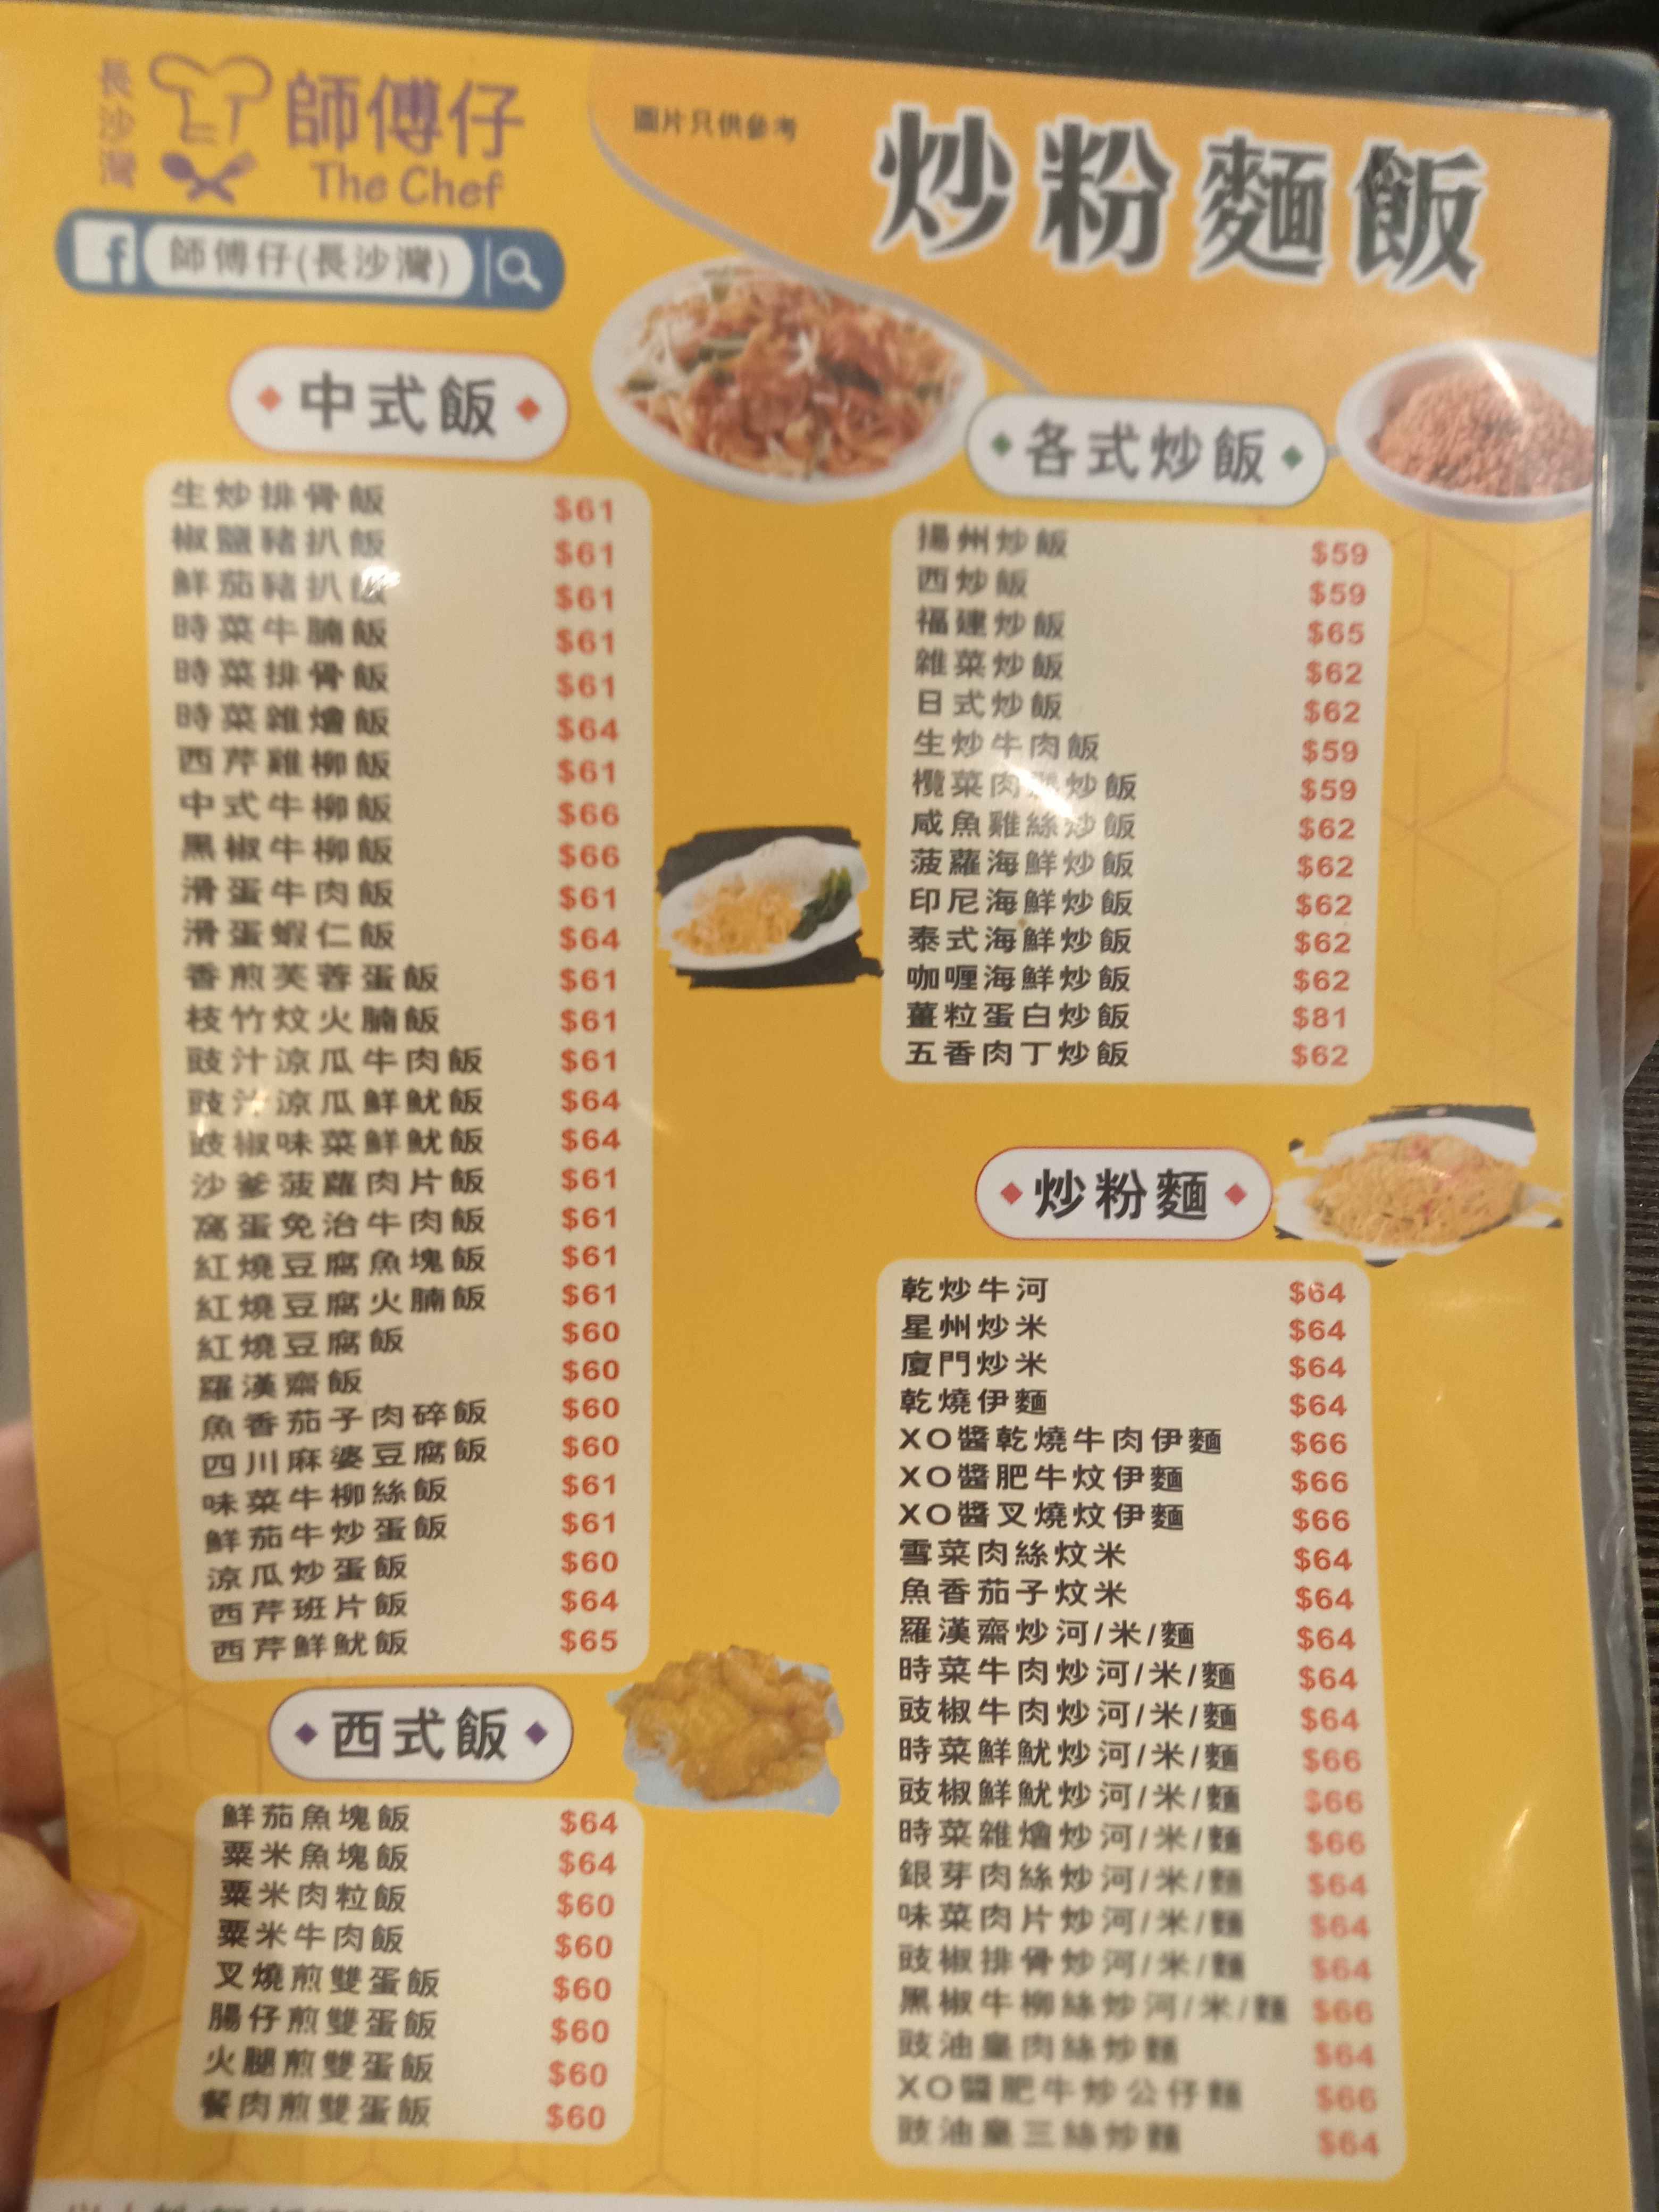 長沙灣
師傅仔
The Chef
師傅仔(長沙灣)
圖片只供參考
炒粉麵飯
中式飯
生炒排骨飯 $61
椒鹽豬扒飯 $61
鮮茄豬扒飯 $61
時菜牛腩飯 $61
時菜排骨飯 $61
時菜雜燴飯 $64
西芹雞柳飯 $61
中式牛柳飯 $66
黑椒牛柳飯 $66
滑蛋牛肉飯 $61
滑蛋蝦仁飯 $64
香煎芙蓉蛋飯 $61
枝竹炆火腩飯 $61
豉汁涼瓜牛肉飯 $61
豉汁涼瓜鮮魷飯 $64
豉椒味菜鮮魷飯 $64
沙爹菠蘿肉片飯 $61
窩蛋免治牛肉飯 $61
紅燒豆腐魚塊飯 $61
紅燒豆腐火腩飯 $61
紅燒豆腐飯 $60
羅漢齋飯 $60
魚香茄子肉碎飯 $60
四川麻婆豆腐飯 $60
味菜牛柳絲飯 $61
鮮茄牛炒蛋飯 $61
涼瓜炒蛋飯 $60
西芹班片飯 $64
西芹鮮魷飯 $65
西式飯
鮮茄魚塊飯 $64
粟米魚塊飯 $64
粟米肉粒飯 $60
粟米牛肉飯 $60
叉燒煎雙蛋飯 $60
腸仔煎雙蛋飯 $60
火腿煎雙蛋飯 $60
餐肉煎雙蛋飯 $60
各式炒飯
揚州炒飯 $59
西炒飯 $59
福建炒飯 $65
雜菜炒飯 $62
日式炒飯 $62
生炒牛肉飯 $59
欖菜肉 炒飯 $59
咸魚雞絲炒飯 $62
菠蘿海鮮炒飯 $62
印尼海鮮炒飯 $62
泰式海鮮炒飯 $62
咖喱海鮮炒飯 $62
薑粒蛋白炒飯 $81
五香肉丁炒飯 $62
炒粉麵
乾炒牛河 $64
星州炒米 $64
廈門炒米 $64
乾燒伊麵 $64
XO醬乾燒牛肉伊麵 $66
XO醬肥牛炆伊麵 $66
XO醬叉燒炆伊麵 $66
雪菜肉絲炆米 $64
魚香茄子炆米 $64
羅漢齋炒河/米/麵 $64
時菜牛肉炒河/米/麵 $64
豉椒牛肉炒河/米/麵 $64
時菜鮮魷炒河/米/麵 $66
豉椒鮮魷炒河/米/麵 $66
時菜雜燴炒河/米/麵 $66
銀芽肉絲炒河/米/麵 $64
味菜肉片炒河/米/麵 $64
豉椒排骨炒河/米/麵 $64
黑椒牛柳絲炒河/米/麵 $66
豉油皇肉絲炒麵 $64
XO醬肥牛炒公仔麵 $66
豉油皇三絲炒麵 $64